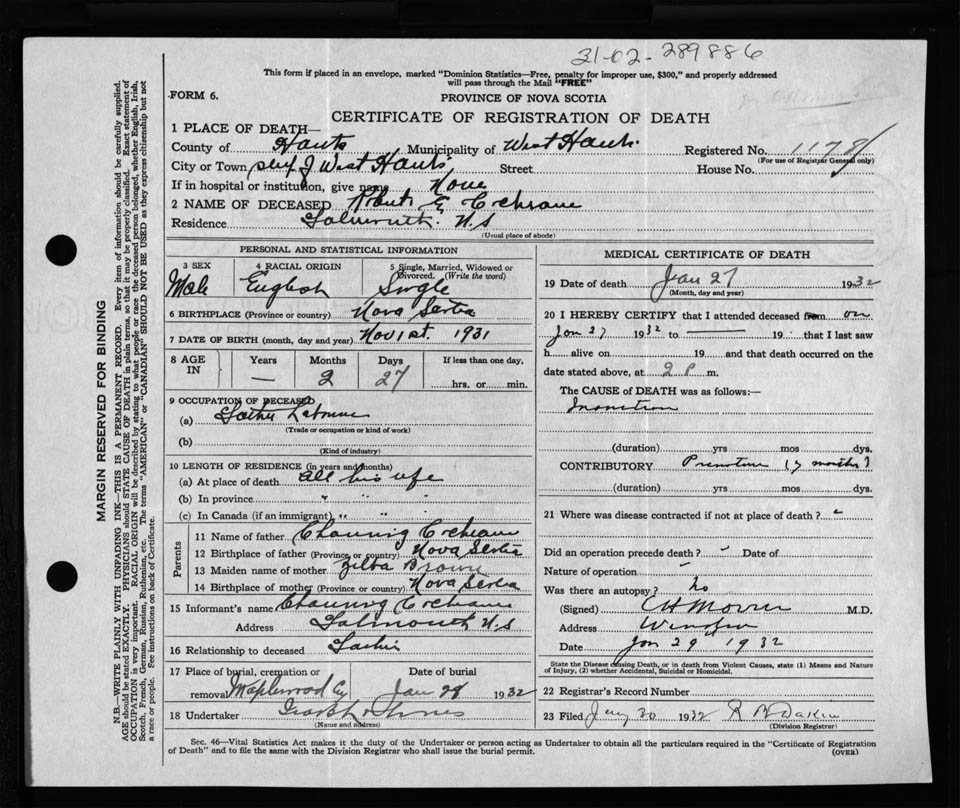 31-02-289886
This form if placed in an envelope, marked "Dominion Statistics—Free, penalty for improper use, $300," and properly addressed
will pass through the Mail "FREE"
FORM 6.
PROVINCE OF NOVA SCOTIA
CERTIFICATE OF REGISTRATION OF DEATH
1 PLACE OF DEATH—
County of Hants Municipality of West Hants. Registered No. 1178
(For use of Registrar General only)
City or Town West Hants Street House No.
If in hospital or institution, give name None
2 NAME OF DECEASED E Cochrane
Residence Falmouth. N.S
(Usual place of abode)
PERSONAL AND STATISTICAL INFORMATION
3 SEX 4 RACIAL ORIGIN 5 Single, Married, Widowed or Divorced. (Write the word)
Male English Single
6 BIRTHPLACE (Province or country) Nova Scotia
7 DATE OF BIRTH (month, day and year) Nov 1st. 1931
8 AGE IN Years Months Days If less than one day,
— 2 27 hrs. or min.
9 OCCUPATION OF DECEASED
(a) Father Laborer
(Trade or occupation or kind of work)
(b)
(Kind of industry)
10 LENGTH OF RESIDENCE (in years and months)
(a) At place of death all his life
(b) In province " " "
(c) In Canada (if an immigrant) " " "
Parents
11 Name of father Channing Cochrane
12 Birthplace of father (Province or country) Nova Scotia
13 Maiden name of mother Zelba Brown
14 Birthplace of mother (Province or country) Nova Scotia
15 Informant's name Channing Cochrane
Address Falmouth N.S
16 Relationship to deceased Father
17 Place of burial, cremation or Date of burial
removal Maplewood Cy Jan 28 1932
18 Undertaker
(Name and address)
MEDICAL CERTIFICATE OF DEATH
19 Date of death Jan 27 1932
(Month, day and year)
20 I HEREBY CERTIFY that I attended deceased from on
Jan 27 1932 to — 19 that I last saw
h alive on 19 and that death occurred on the
date stated above, at 2 P m.
The CAUSE OF DEATH was as follows:
Inanition
(duration) yrs mos dys.
CONTRIBUTORY Premature (7 months)
(duration) yrs mos dys.
21 Where was disease contracted if not at place of death?
Did an operation precede death? Date of
Nature of operation
Was there an autopsy? no
(Signed) M.D.
Address Windsor
Date Jan 29th 1932
State the Disease causing Death, or in death from Violent Causes, state (1) Means and Nature
of Injury, (2) whether Accidental, Suicidal or Homicidal.
22 Registrar's Record Number
23 Filed Jany 30 1932 R B Dakin
(Division Registrar)
Sec. 46—Vital Statistics Act makes it the duty of the Undertaker or person acting as Undertaker to obtain all the particulars required in the "Certificate of Registration
of Death" and to file the same with the Division Registrar who shall issue the burial permit.
(OVER)
MARGIN RESERVED FOR BINDING
N.B.—WRITE PLAINLY WITH UNFADING INK—THIS IS A PERMANENT RECORD. Every item of information should be carefully supplied.
AGE should be stated EXACTLY. PHYSICIANS should STATE CAUSE OF DEATH in plain terms, so that it may be properly classified. Exact statement of
OCCUPATION is very important. RACIAL ORIGIN will be described by stating to what people or race the deceased person belonged, whether English, Irish,
Scotch, French, German, Russian, Ruthenian, etc. The terms "AMERICAN" or "CANADIAN" SHOULD NOT BE USED as they express citizenship but not
a race or people. See instructions on back of Certificate.